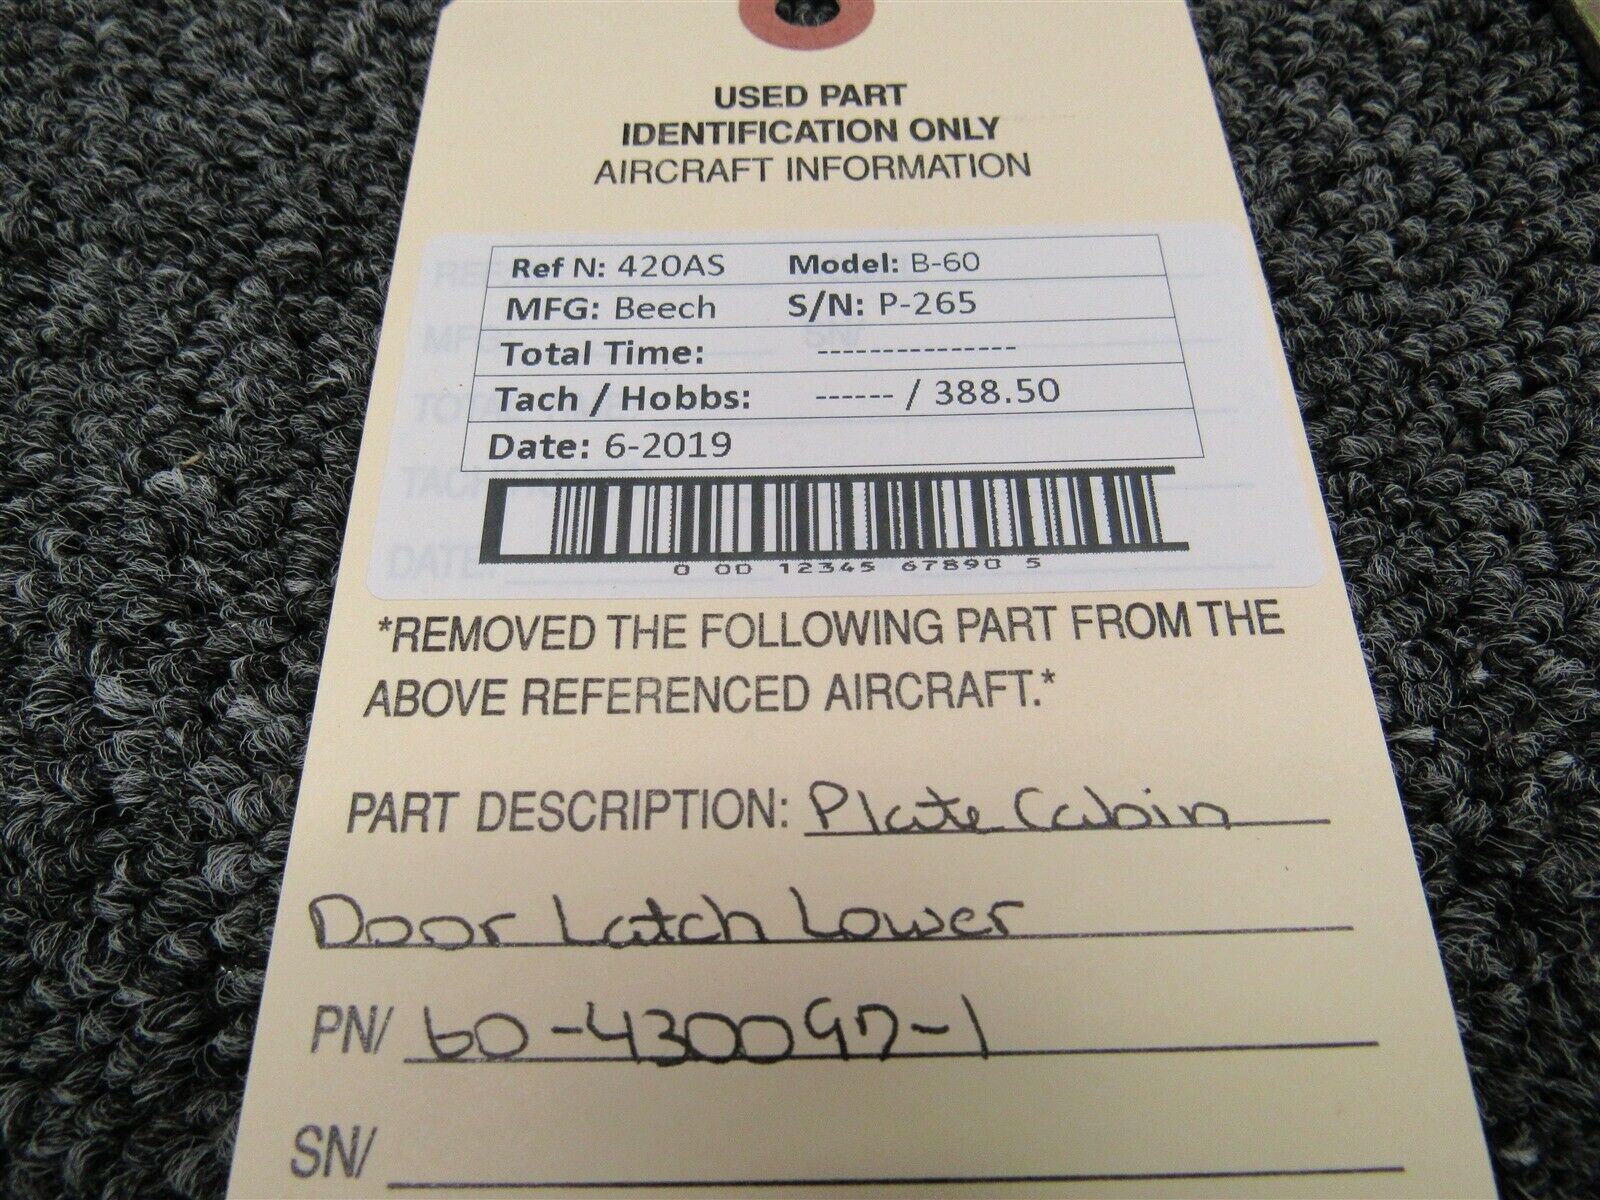 USED PART
IDENTIFICATION ONLY
AIRCRAFT INFORMATION
Ref N: 420AS Model: B-60
MFG: Beech S/N: P-265
Total Time: ---------------
Tach / Hobbs: ------ / 388.50
Date: 6-2019
0 00 12345 67890 5
*REMOVED THE FOLLOWING PART FROM THE
ABOVE REFERENCED AIRCRAFT.*
PART DESCRIPTION: Plate Cabin
Door Latch Lower
PN/ 60-430097-1
SN/